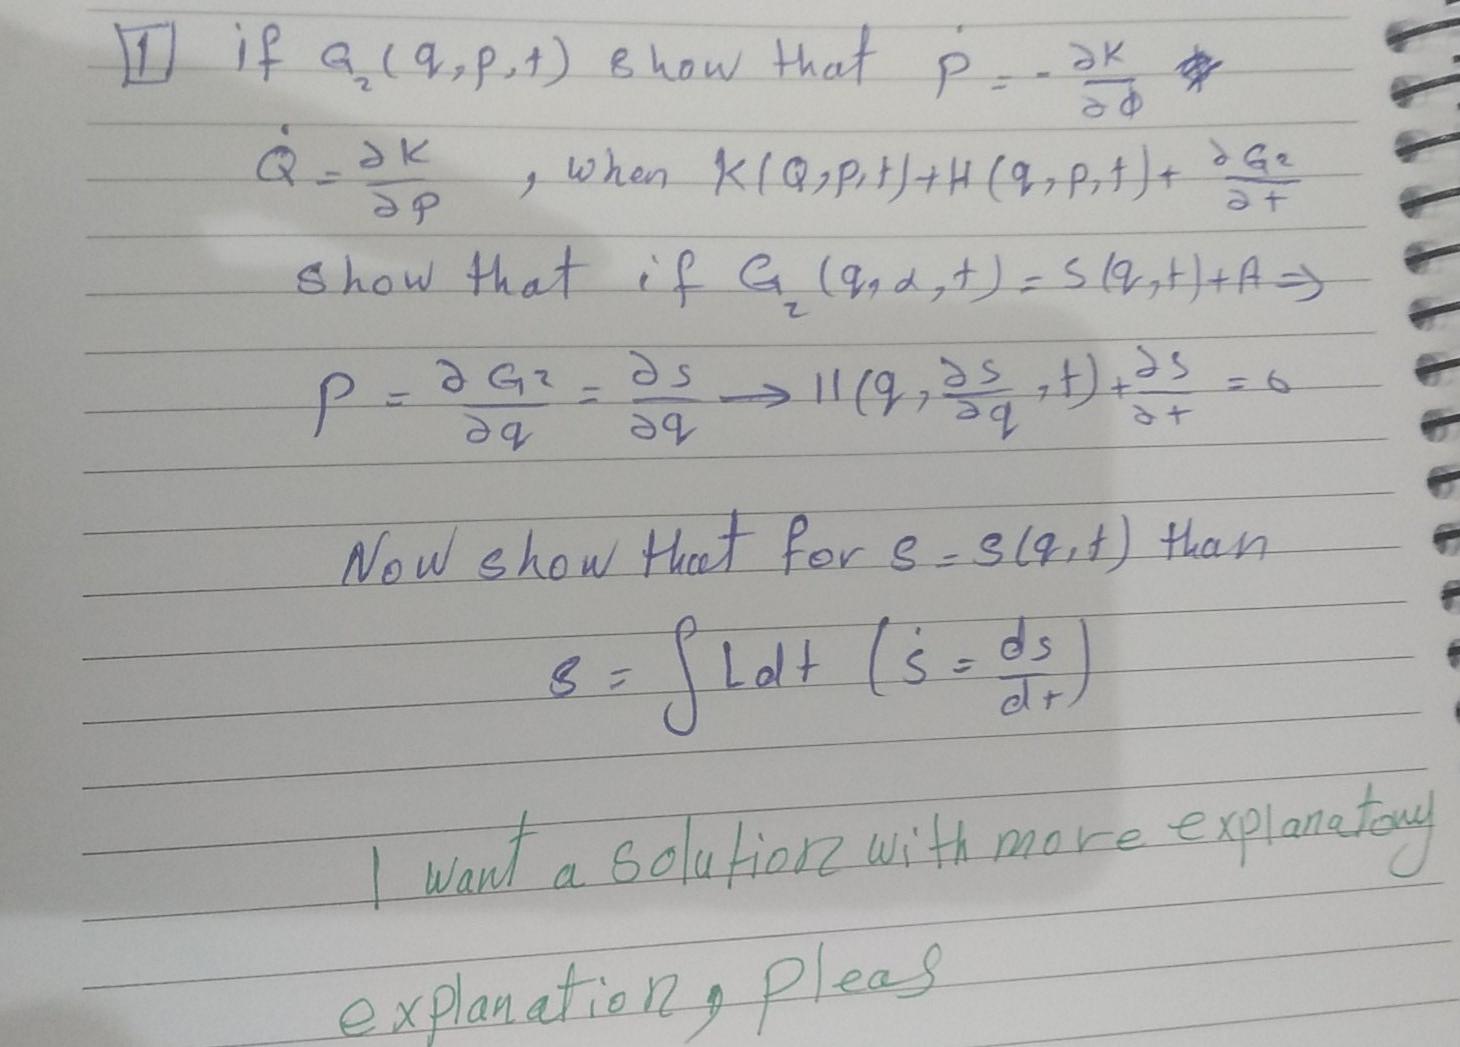 1 if G₂(q,p,t) show that Ṗ = - ∂K/∂Φ
Q̇ = ∂K/∂P , when K(Q,P,t)+H(q,p,t)+ ∂G₂/∂t
show that if G₂(q,α,t) = S(q,t)+A ⇒
P = ∂G₂/∂q = ∂s/∂q → H(q, ∂s/∂q, t)+ ∂s/∂t = 0
Now show that for s = s(q,t) than
s = ∫Ldt (ṡ = ds/dt)
I want a solution with more explanatony
explanation, pleas